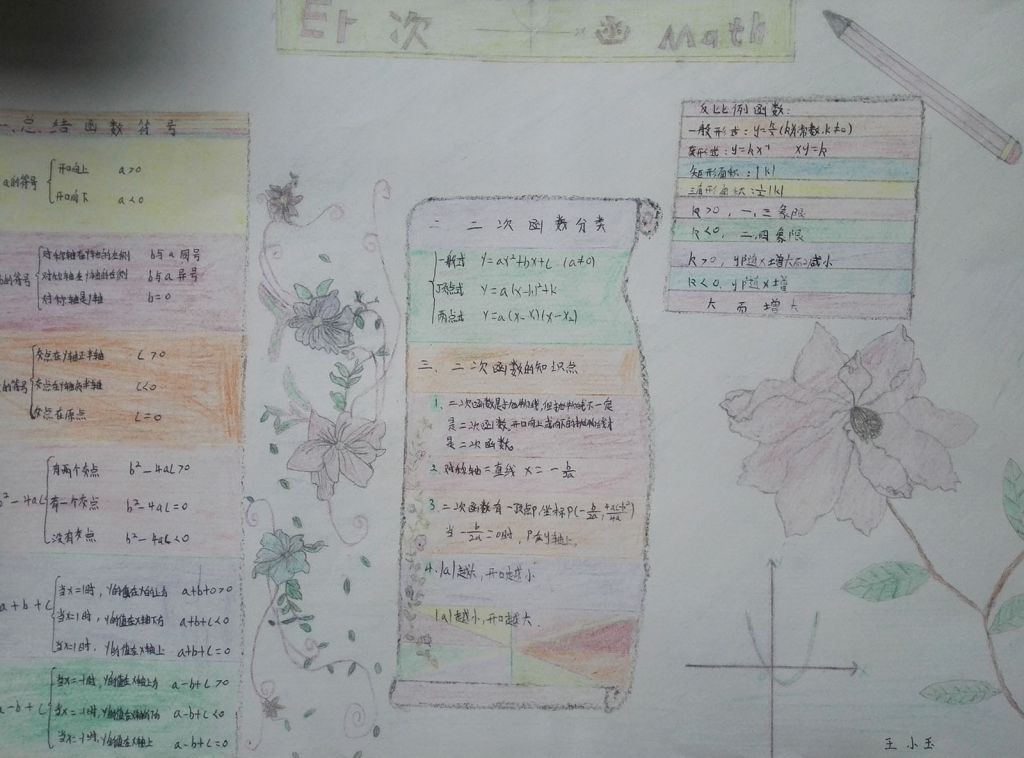 Er 次 函 Math
一、总结函数符号
a的符号
开口向上 a>0
开口向下 a<0
b的符号
对称轴在y轴的左侧 b与a同号
对称轴在y轴的右侧 b与a异号
对称轴是y轴 b=0
的符号
交点在y轴正半轴 C>0
交点在y轴负半轴 C<0
交点在原点 C=0
b²-4ac
有两个交点 b²-4ac>0
有一个交点 b²-4ac=0
没有交点 b²-4ac<0
a+b+c
当x=1时,y的值在x轴上方 a+b+c>0
当x=1时,y的值在x轴下方 a+b+c<0
当x=1时,y的值在x轴上 a+b+c=0
a-b+c
当x=-1时,y的值在x轴上方 a-b+c>0
当x=-1时,y的值在x轴下方 a-b+c<0
当x=-1时,y的值在x轴上 a-b+c=0
二 二次函数分类
一般式 y=ax²+bx+c (a≠0)
顶点式 y=a(x-h)²+k
两点式 y=a(x-x₁)(x-x₂)
三、二次函数的知识点
1、二次函数是抛物线,但抛物线不一定
是二次函数,开口向上或向下的抛物线才
是二次函数。
2、对称轴=直线 x=-b/2a
3、二次函数有一顶点P,坐标P(-b/2a, 4ac-b²/4a)
当-b/2a=0时,P在y轴上。
4、|a|越大,开口越小
|a|越小,开口越大.
反比例函数:
一般形式:y=k/x(k为常数,k≠0)
变形式:y=kx⁻¹ xy=k
矩形面积:|k|
三角形面积:½|k|
k>0,一、三象限
k<0,二、四象限
k>0,y随x增大而减小
k<0,y随x增
大而增大
王小玉